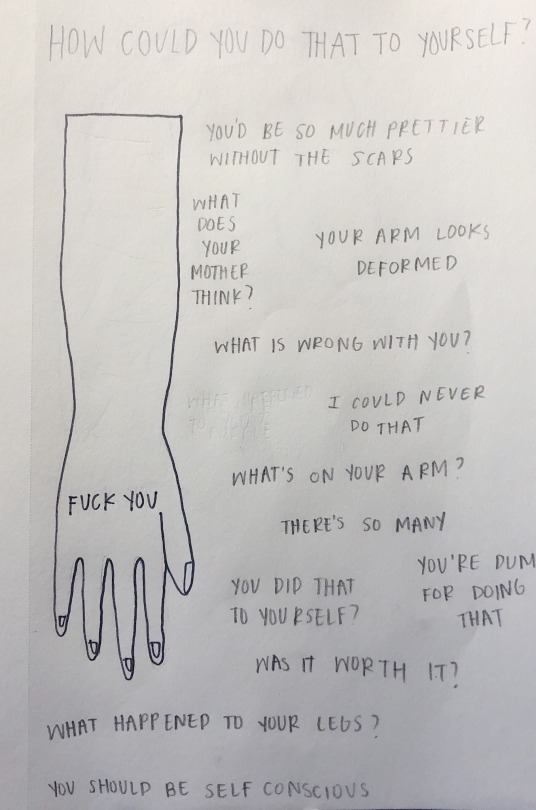 HOW COULD YOU DO THAT TO YOURSELF?
YOU'D BE SO MUCH PRETTIER
WITHOUT THE SCARS
WHAT
DOES
YOUR
MOTHER
THINK?
YOUR ARM LOOKS
DEFORMED
WHAT IS WRONG WITH YOU?
WHAT HAPPENED
I COULD NEVER
DO THAT
WHAT'S ON YOUR ARM?
FUCK YOU
THERE'S SO MANY
YOU'RE DUM
FOR DOING
THAT
YOU DID THAT
TO YOURSELF?
WAS IT WORTH IT?
WHAT HAPPENED TO YOUR LEGS?
YOU SHOULD BE SELF CONSCIOUS